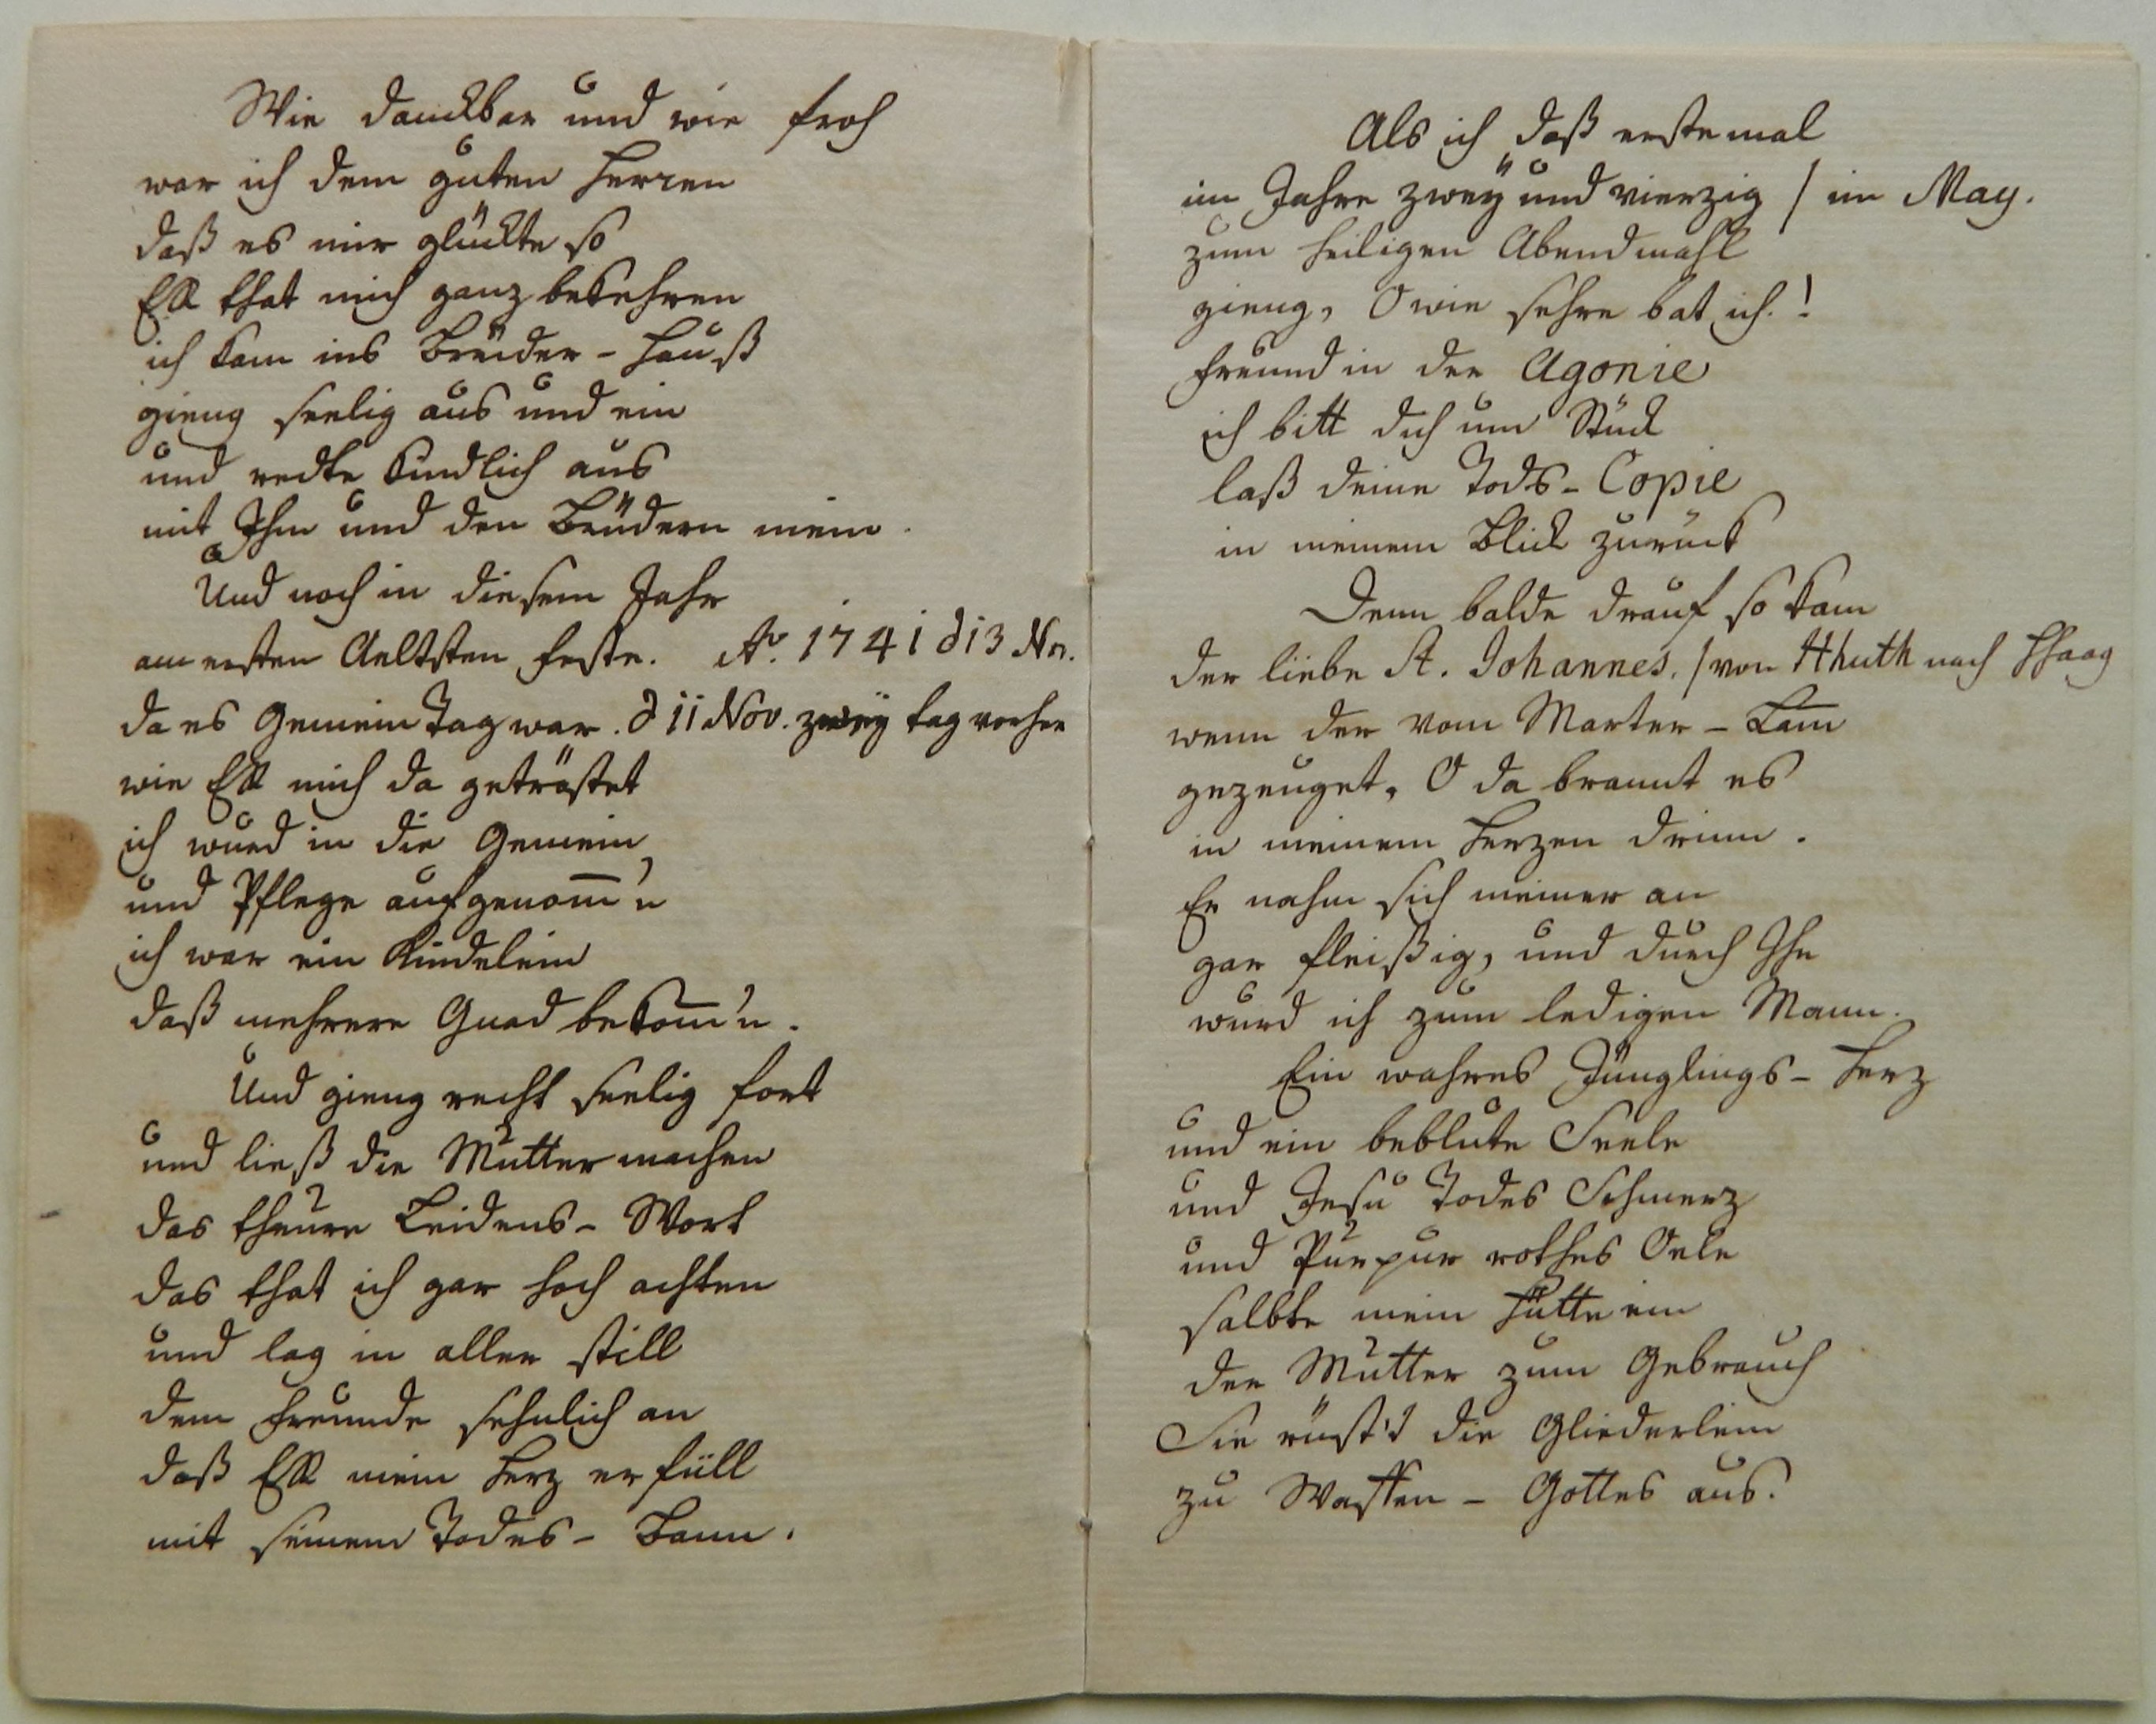 Wie danckbar und wie froh
war ich dem guten Herren
daß es mir glückte so
Er that mich ganz bekehren
ich kam ins Brüder-Hauß
gieng seelig aus und ein
und redte kindlich aus
mit Ihm und den Brüdern mein.
Und noch in diesem Jahr
am ersten Aeltsten Feste. Ao. 1741 d 13 Nov.
da es Gemein Tag war. d 11 Nov. zwey tag vorher
wie Er mich da getröstet
ich wurd in die Gemein
und Pflege aufgenom̅'n
ich war ein Kindelein
daß mehrere Gnad bekom̅'n.
Und gieng recht seelig fort
und ließ die Mutter machen
das theure Leidens-Wort
das that ich gar hoch achten
und lag in aller still
dem Freunde sehnlich an
daß Er mein Herz erfüll
mit seinem Todes-Bann.
Als ich daß erstemal
im Jahre zweÿ und vierzig / im May.
zum heiligen Abendmahl
gieng, O wie sehre bat ich.!
Freund in der Agonie
ich bitt dich um Stück
laß deine Tods-Copie
in meinem Blick zurück
Denn balde drauf so kam
der liebe St. Johannes. / von Hhuth nach HHaag
wenn der vom Marter-Lam̅
gezeuget, O da brannt es
in meinem Herzen drinn.
Er nahm sich meiner an
gar fleißig, und durch Ihn
wurd ich zum ledigen Mann.
Ein wahres Jünglings-Herz
und ein beblute Seele
und Jesu Todes Schmerz
und Purpur rothes Oele
salbte mein Hütte ein
der Mutter zum Gebrauch
Sie rüst't die Gliederlein
zu Waffen-Gottes aus.